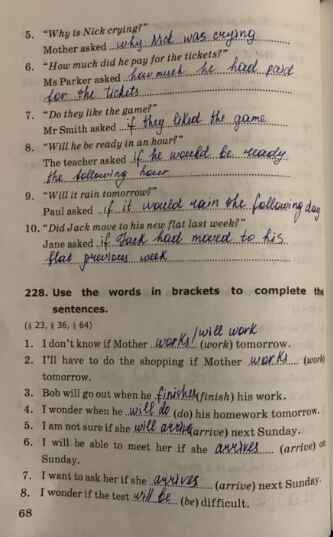 5. "Why is Nick crying?"
Mother asked why Nick was crying
6. "How much did he pay for the tickets?"
Ms Parker asked how much he had paid
for the tickets
7. "Do they like the game?"
Mr Smith asked if they liked the game
8. "Will he be ready in an hour?"
The teacher asked if he would be ready
the following hour
9. "Will it rain tomorrow?"
Paul asked if it would rain the following day
10. "Did Jack move to his new flat last week?"
Jane asked if Jack had moved to his
flat previous week
228. Use the words in brackets to complete the
sentences.
(§ 23, § 36, § 64)
1. I don't know if Mother works/will work (work) tomorrow.
2. I'll have to do the shopping if Mother works (work)
tomorrow.
3. Bob will go out when he finishes (finish) his work.
4. I wonder when he will do (do) his homework tomorrow.
5. I am not sure if she will arrive (arrive) next Sunday.
6. I will be able to meet her if she arrives (arrive) on
Sunday.
7. I want to ask her if she arrives (arrive) next Sunday.
8. I wonder if the test will be (be) difficult.
68